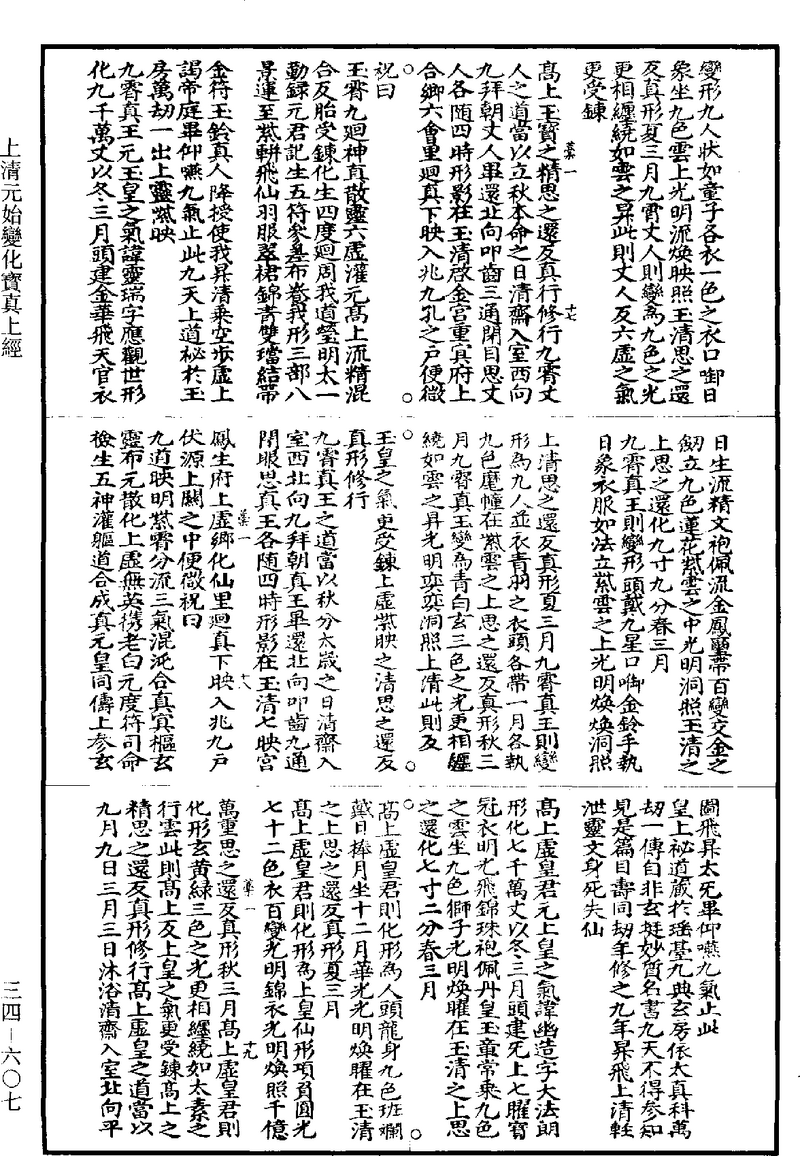 變形九人狀如童子各衣一色之衣口啣日
象坐九色雲上光明流煥映照玉清思之還
反真形夏三月九霄丈人則變為九色之光
更相纏繞如雲之昇此則丈人反六虛之氣
更受鍊
高上玉寶之精思之還反真行修行九霄丈
人之道當以立秋本命之日清齋入室西向
九拜朝丈人畢還北向叩齒三通閉目思丈
人各隨四時形影在玉清啟金宮重冥府上
合鄉六會里迴真下映入兆九孔之戶便微
祝曰
玉霄九迴神真散靈六虛灌元高上流精混
合反胎受鍊化生四度迴周我道瑩明太一
動錄元君記生五符參基布卷我形三部八
景運至紫軿飛仙羽服翠裙錦青雙璫結帶
金符玉鈴真人降授使我昇清乘空步虛上
謁帝庭畢仰嚥九氣止此九天上道祕於玉
房萬劫一出上靈紫映
九霄真王元玉皇之氣諱靈瑞字應觀世形
化九千萬丈以冬三月頭建金華飛天官衣
日生流精文袍佩流金鳳璽帶百變交金之
劒立九色蓮花紫雲之中光明洞照玉清之
上思之還化九寸九分春三月
九霄真王則變形頭戴九星口啣金鈴手執
日象衣服如法立紫雲之上光明煥煥洞照
上清思之還反真形夏三月九霄真王則變
形為九人並衣青羽之衣頭各帶一月各執
九色麾幢在紫雲之上思之還反真形秋三
月九霄真王變為青白玄三色之光更相纏
繞如雲之昇光明奕奕洞照上清此則反
玉皇之氣更受鍊上虛紫映之清思之還反
真形修行
九霄真王之道當以秋分太歲之日清齋入
室西北向九拜朝真王畢還北向叩齒九通
閉眼思真王各隨四時形影在玉清七映宮
鳳生府上虛鄉化仙里迴真下映入兆九戶
伏源上闕之中便微祝曰
九道映明紫霄分流三氣混沌合真冥樞玄
靈布元散化上虛無英攜老白元度符司命
檢生五神灌軀道合成真元皇同儔上參玄
圖飛昇太無畢仰嚥九氣止此
皇上祕道藏於瑤臺九典玄房依太真科萬
劫一傳自非玄挺妙質名書九天不得參知
見是篇目壽同劫年修之九年昇飛上清輕
泄靈文身死失仙
高上虛皇君元上皇之氣諱幽造字大法朗
形化七千萬丈以冬三月頭建無上七曜寶
冠衣明光飛錦珠袍佩丹皇玉章常乘九色
之雲坐九色獅子光明煥曜在玉清之上思
之還化七寸二分春三月
高上虛皇君則化形為人頭龍身九色班斕
戴日捧月坐十二月華光光明煥曜在玉清
之上思之還反真形夏三月
高上虛皇君則化形為上皇仙形項負圓光
七十二色衣百變光明錦衣光明煥照千億
萬重思之還反真形秋三月高上虛皇君則
化形玄黃綠三色之光更相纏繞如太素之
行雲此則高上反上皇之氣更受鍊高上之
精思之還反真形修行高上虛皇之道當以
九月九日三月三日沐浴清齋入室北向平
上清元始變化寶真上經
三四－六〇七